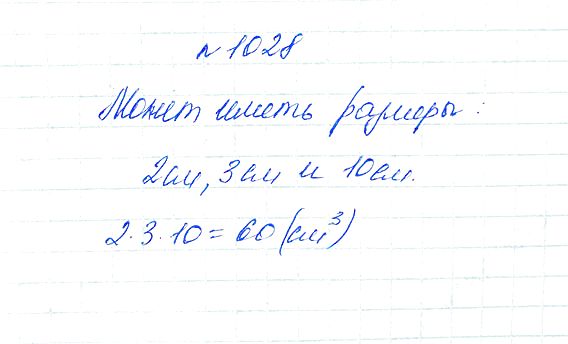 № 1028
Может иметь размеры:
2см, 3см и 10см.
2·3·10=60(см³)